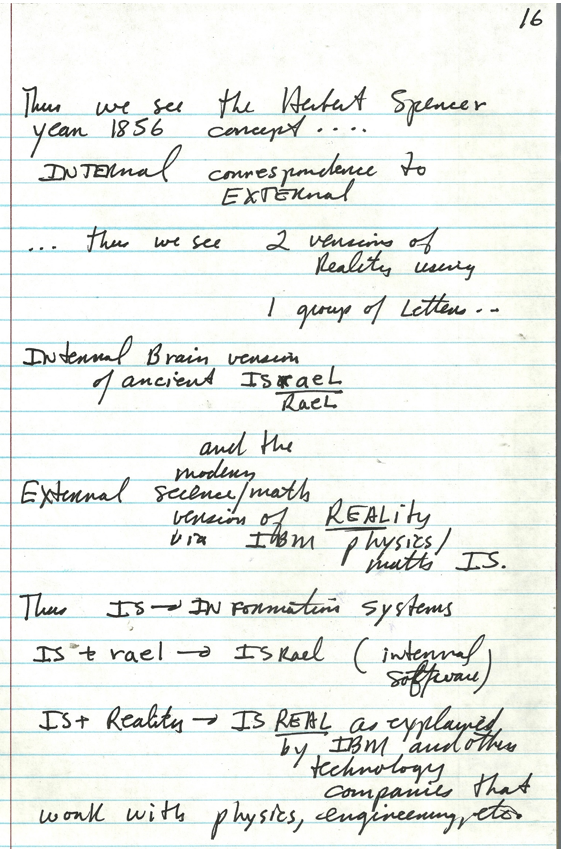 16
Thus we see the Herbert Spencer
year 1856 concept ....
INTERnal correspondence to
EXTERnal
... thus we see 2 versions of
Reality using
1 group of Letters ...
INternal Brain version
of ancient ISraeL
RaeL
and the
modern
External science/math
version of REALity
via IBM physics/
math IS.
Thus IS → INFormation Systems
IS + rael → ISRael (internal
software)
IS + Reality → IS REAL as explained
by IBM and other
technology
companies that
work with physics, engineering, etc.